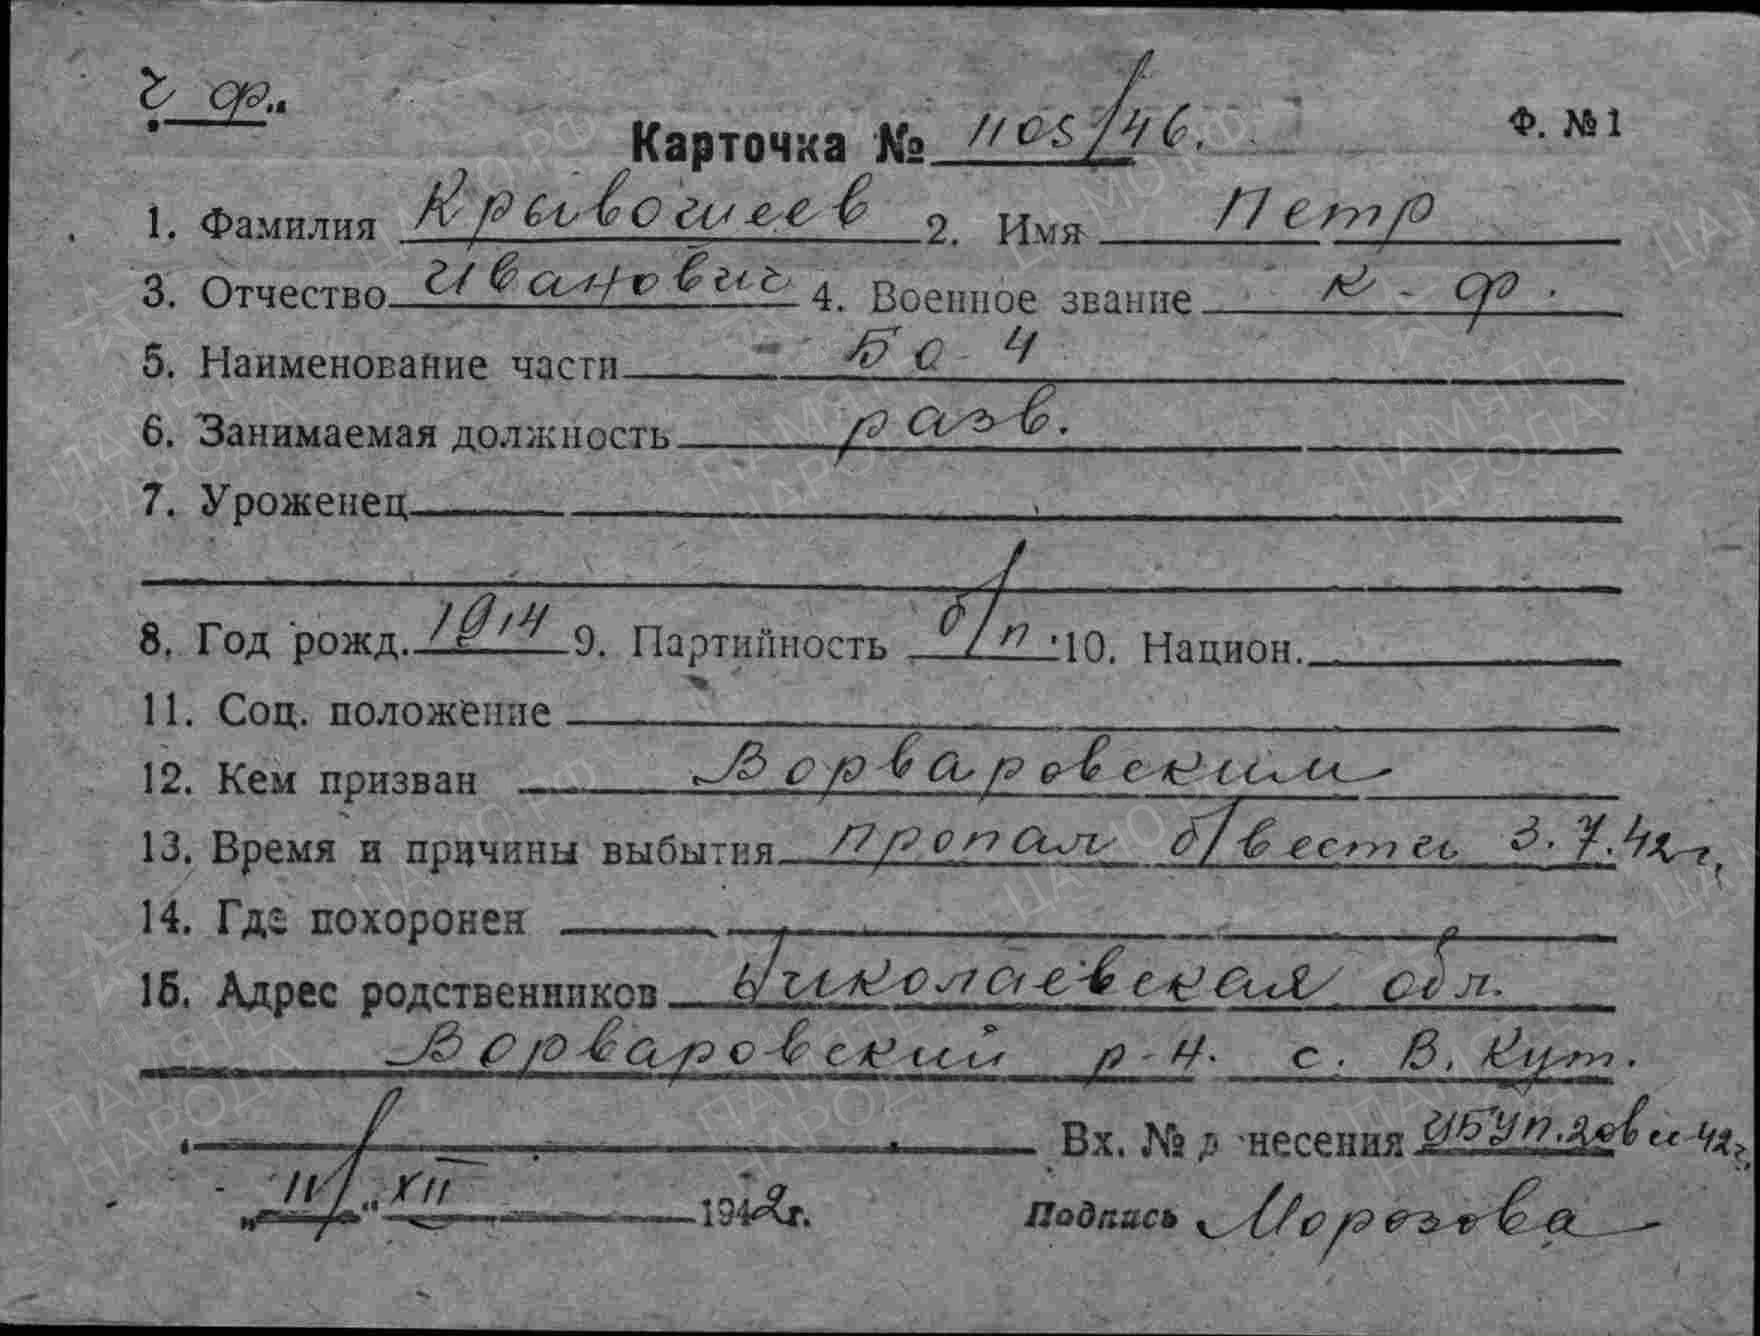 ч ф.
Карточка № 1105/46. Ф. №1
1. Фамилия Крывошеев 2. Имя Петр
3. Отчество Иванович 4. Военное звание к-ф.
5. Наименование части БО-4
6. Занимаемая должность разв.
7. Уроженец
8. Год рожд. 1914 9. Партийность б/п 10. Национ.
11. Соц. положение
12. Кем призван Ворваровским
13. Время и причины выбытия пропал б/вести 3.7.42г.
14. Где похоронен
15. Адрес родственников Николаевская обл.
Ворваровский р-н. с. В. Кут.
Вх. № д несения 42г.
" " XII 1942г. Подпись Морозова